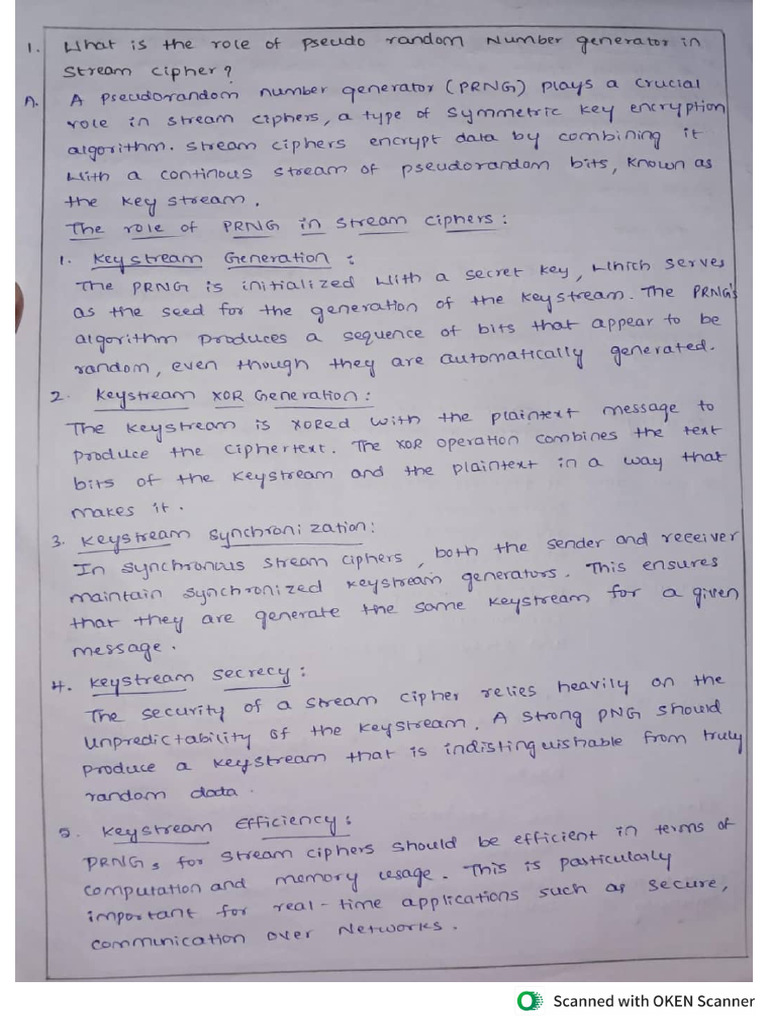 1. What is the role of pseudo random Number generator in
stream cipher?
A. A pseudorandom number generator (PRNG) plays a crucial
role in stream ciphers, a type of symmetric key encryption
algorithm. stream ciphers encrypt data by combining it
with a continous stream of pseudorandom bits, known as
the key stream.
The role of PRNG in stream ciphers:
1. Keystream Generation:
The PRNG is initialized with a secret key, which serves
as the seed for the generation of the keystream. The PRNG's
algorithm produces a sequence of bits that appear to be
random, even though they are automatically generated.
2. Keystream XOR Generation:
The keystream is XORed with the plaintext message to
produce the ciphertext. The XOR operation combines the text
bits of the keystream and the plaintext in a way that
makes it.
3. Keystream synchronization:
In synchronous stream ciphers, both the sender and receiver
maintain synchronized keystream generators. This ensures
that they are generate the same keystream for a given
message.
4. Keystream secrecy:
The security of a stream cipher relies heavily on the
unpredictability of the keystream. A strong PNG should
produce a keystream that is indistinguishable from truly
random data.
5. Keystream Efficiency:
PRNGs for stream ciphers should be efficient in terms of
computation and memory usage. This is particularly
important for real-time applications such as secure,
communication over Networks.
Scanned with OKEN Scanner